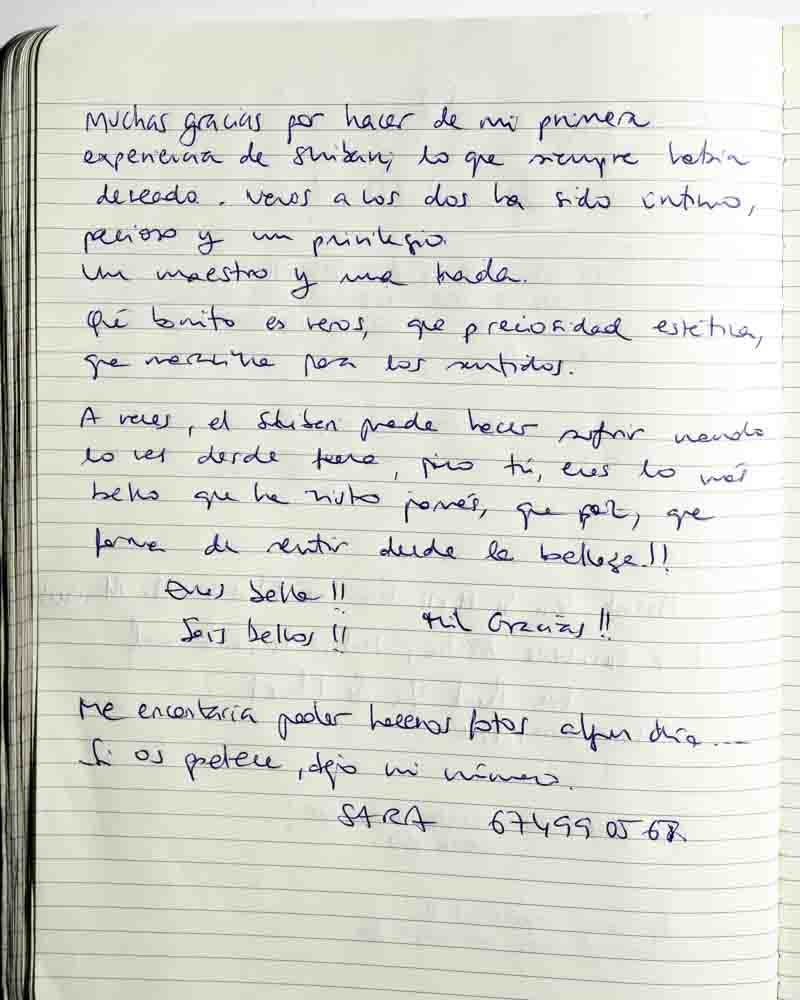 Muchas gracias por hacer de mi primera
experiencia de Shibari, lo que siempre había
deseado. Veros a los dos ha sido íntimo,
precioso y un privilegio.
Un maestro y una hada.
Qué bonito es veros, que preciosidad estética,
que maravilla para los sentidos.
A veces, el Shibari puede hacer sufrir cuando
lo ves desde fuera, pero tú, eres lo más
bello que he visto jamás, que paz, que
forma de sentir desde la belleza!!
Eres bella!!
Sois bellos!! Mil Gracias!!
Me encantaría poder haceros fotos algun día...
Si os apetece, dejo mi número.
SARA 67499 05 68